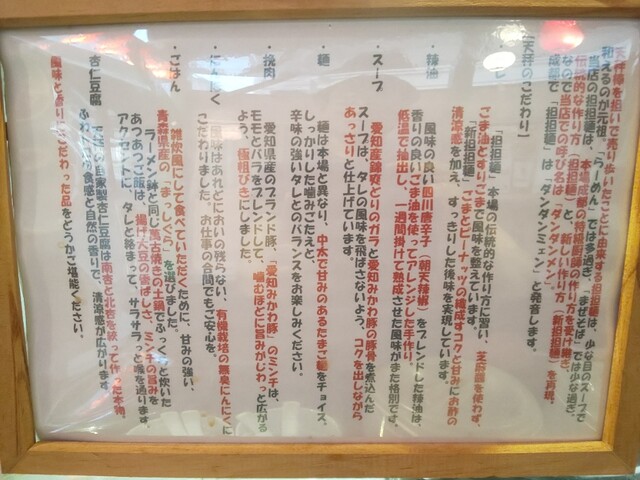 天秤棒を担いで売り歩いたことに由来する担担麺は、少な目のスープで
和えるのが元祖
当店の担担麺は、「らーめん」では多過ぎ、「まぜそば」では少な過ぎ、
伝統的な作り方(担担麺)と、新しい作り方(新担担麺)を再現。
なので当店での呼び名は「ダンダンメン」。
成都で「担担麺」は「ダンダンミェン」と発音します。
【天秤のこだわり】
「担担麺」本場の伝統的な作り方に習い、芝麻醤を使わず、
ごま油とすりごまで風味を整えています。
「新担担麺」ごまとピーナッツの醸成すコクと甘みにお酢の
清涼感を加え、すっきりした後味を実現しています。
・辣油
風味の良い四川唐辛子(朝天辣椒)をブレンドした辣油は、
香りの良いごま油を使ってアレンジした手作り。
低温で抽出し、一週間掛けて熟成させた風味がまた格別です。
・スープ
愛知産錦爽どりのガラと愛知みかわ豚の豚骨を煮込んだ
スープは、タレの風味を飛ばさないよう、コクを出しながら
あっさりと仕上げています。
・麺
麺は本場と異なり、中太で甘みのあるたまご麺をチョイス。
しっかりした噛みごたえと、
辛味の強いタレとのバランスをお楽しみください。
・挽肉
愛知県産のブランド豚、「愛知みかわ豚」のミンチは、
モモとバラをブレンドして、噛むほどに旨みがじわっと広がる
よう、極粗びきにしました。
・にんにく
風味はあれどにおいの残らない、有機栽培の無臭にんにくに
こだわりました。お仕事の合間でもご安心を。
・ごはん
雑炊風にして食べていただくために、甘みの強い、
青森県産の「まっしぐら」を選びました。
ラーメン鉢と同じ萬古焼きの土鍋でふっくらと炊いた
あつあつご飯は、揚げ大豆の香ばしさ、ミンチの旨みを
アクセントに、タレと絡まって、サラサラっと喉を通ります。
杏仁豆腐
の食感と自然の香りで、清涼感が広がります。
自家製杏仁豆腐は南杏と北杏を使って作った本物。
風味と香りにこだわった品をどうかご堪能ください。